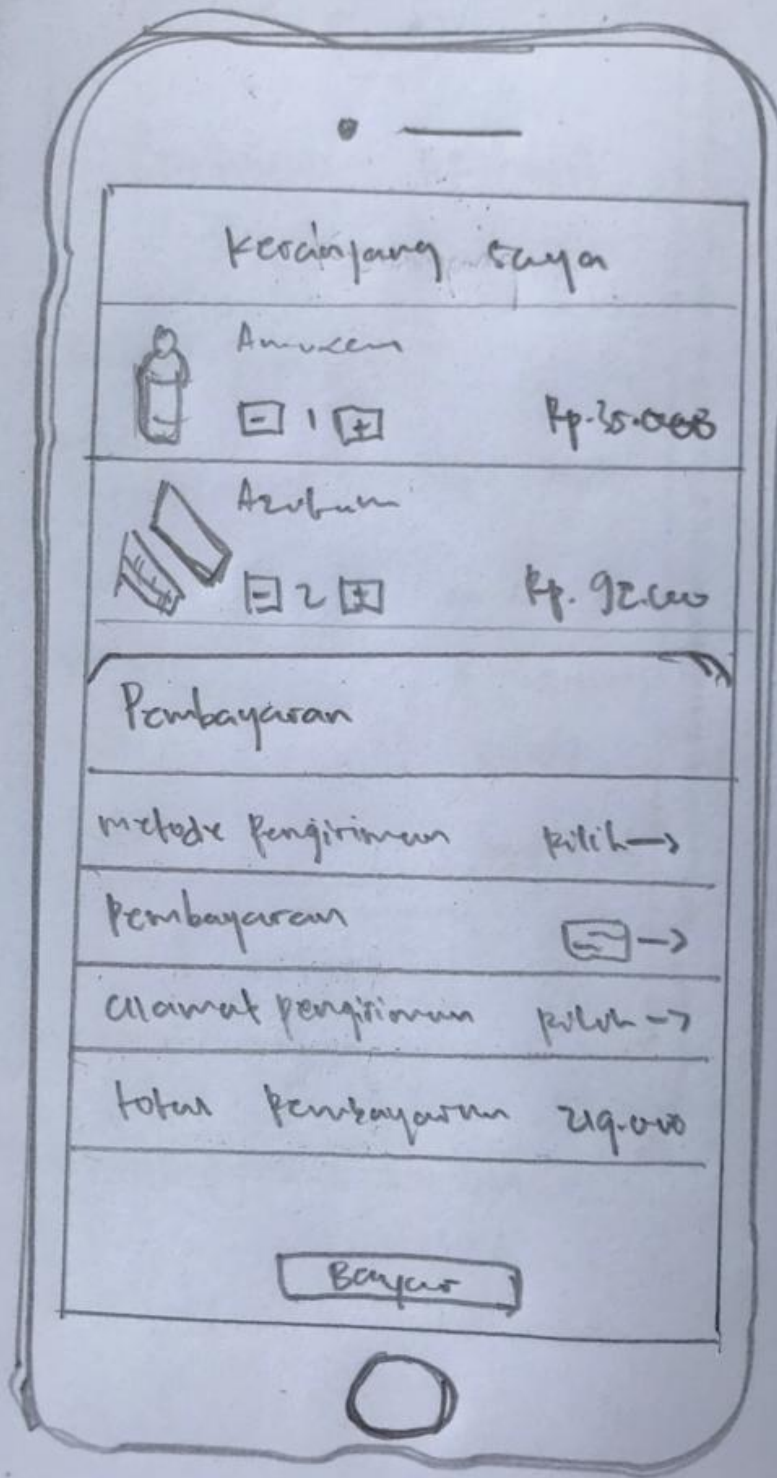 Keranjang saya
- 1 +
Rp. 35.000
- 2 +
Rp. 92.000
Pembayaran
metode pengiriman pilih →
Pembayaran →
alamat pengiriman pilih →
total pembayaran 219.000
Bayar